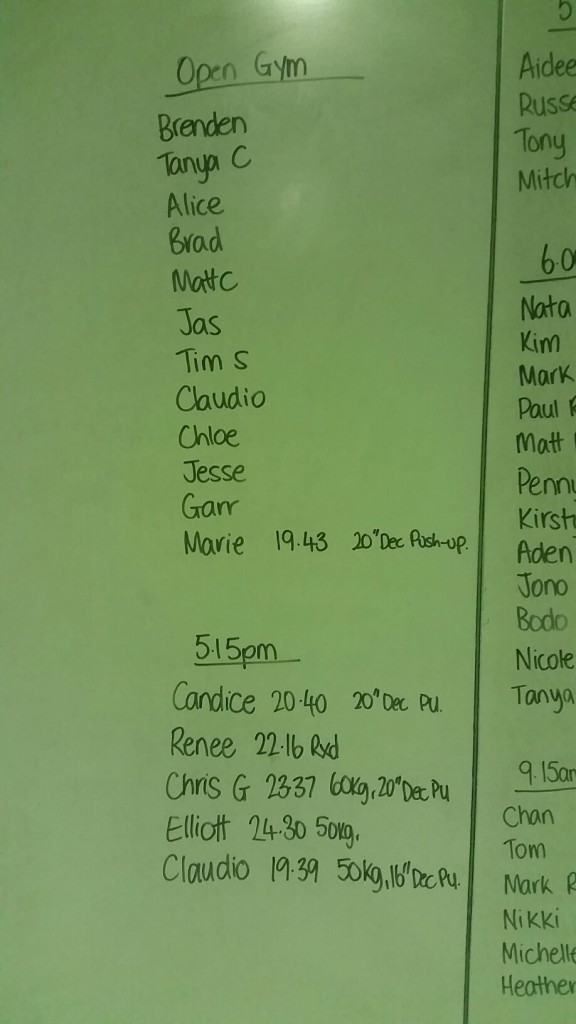 Open Gym
Brenden
Tanya C
Alice
Brad
Matt C
Jas
Tim S
Claudio
Chloe
Jesse
Garr
Marie 19.43 20" Dec Push-up.
5.15pm
Candice 20.40 20" Dec PU.
Renee 22.16 Rxd
Chris G 23.37 60kg, 20" Dec PU
Elliott 24.30 50kg.
Claudio 19.39 50kg, 16" Dec PU.
5
Aidee
Russe
Tony
Mitch
6.0
Nata
Kim
Mark
Paul
Matt
Penny
Kirst
Aden
Jono
Bodo
Nicole
Tanya
9.15am
Chan
Tom
Mark R
Nikki
Michelle
Heather